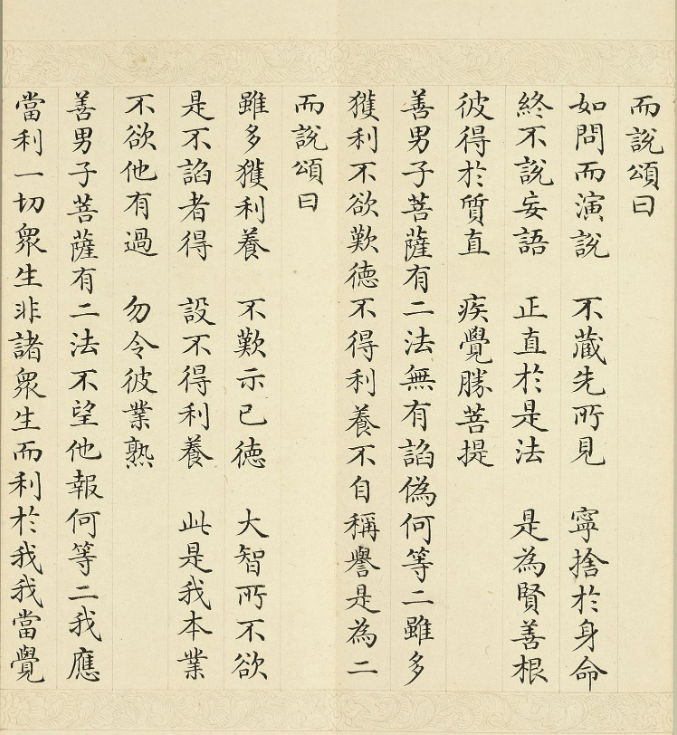 而說頌曰
如問而演說　不藏先所見　寧捨於身命
終不說妄語　正直於是法　是為賢善根
彼得於質直　疾覺勝菩提
善男子菩薩有二法無有諂偽何等二雖多
獲利不欲歎德不得利養不自稱譽是為二
而說頌曰
雖多獲利養　不歎示已德　大智所不欲
是不諂者得　設不得利養　此是我本業
不欲他有過　勿令彼業熟
善男子菩薩有二法不望他報何等二我應
當利一切衆生非諸衆生而利於我我當覺